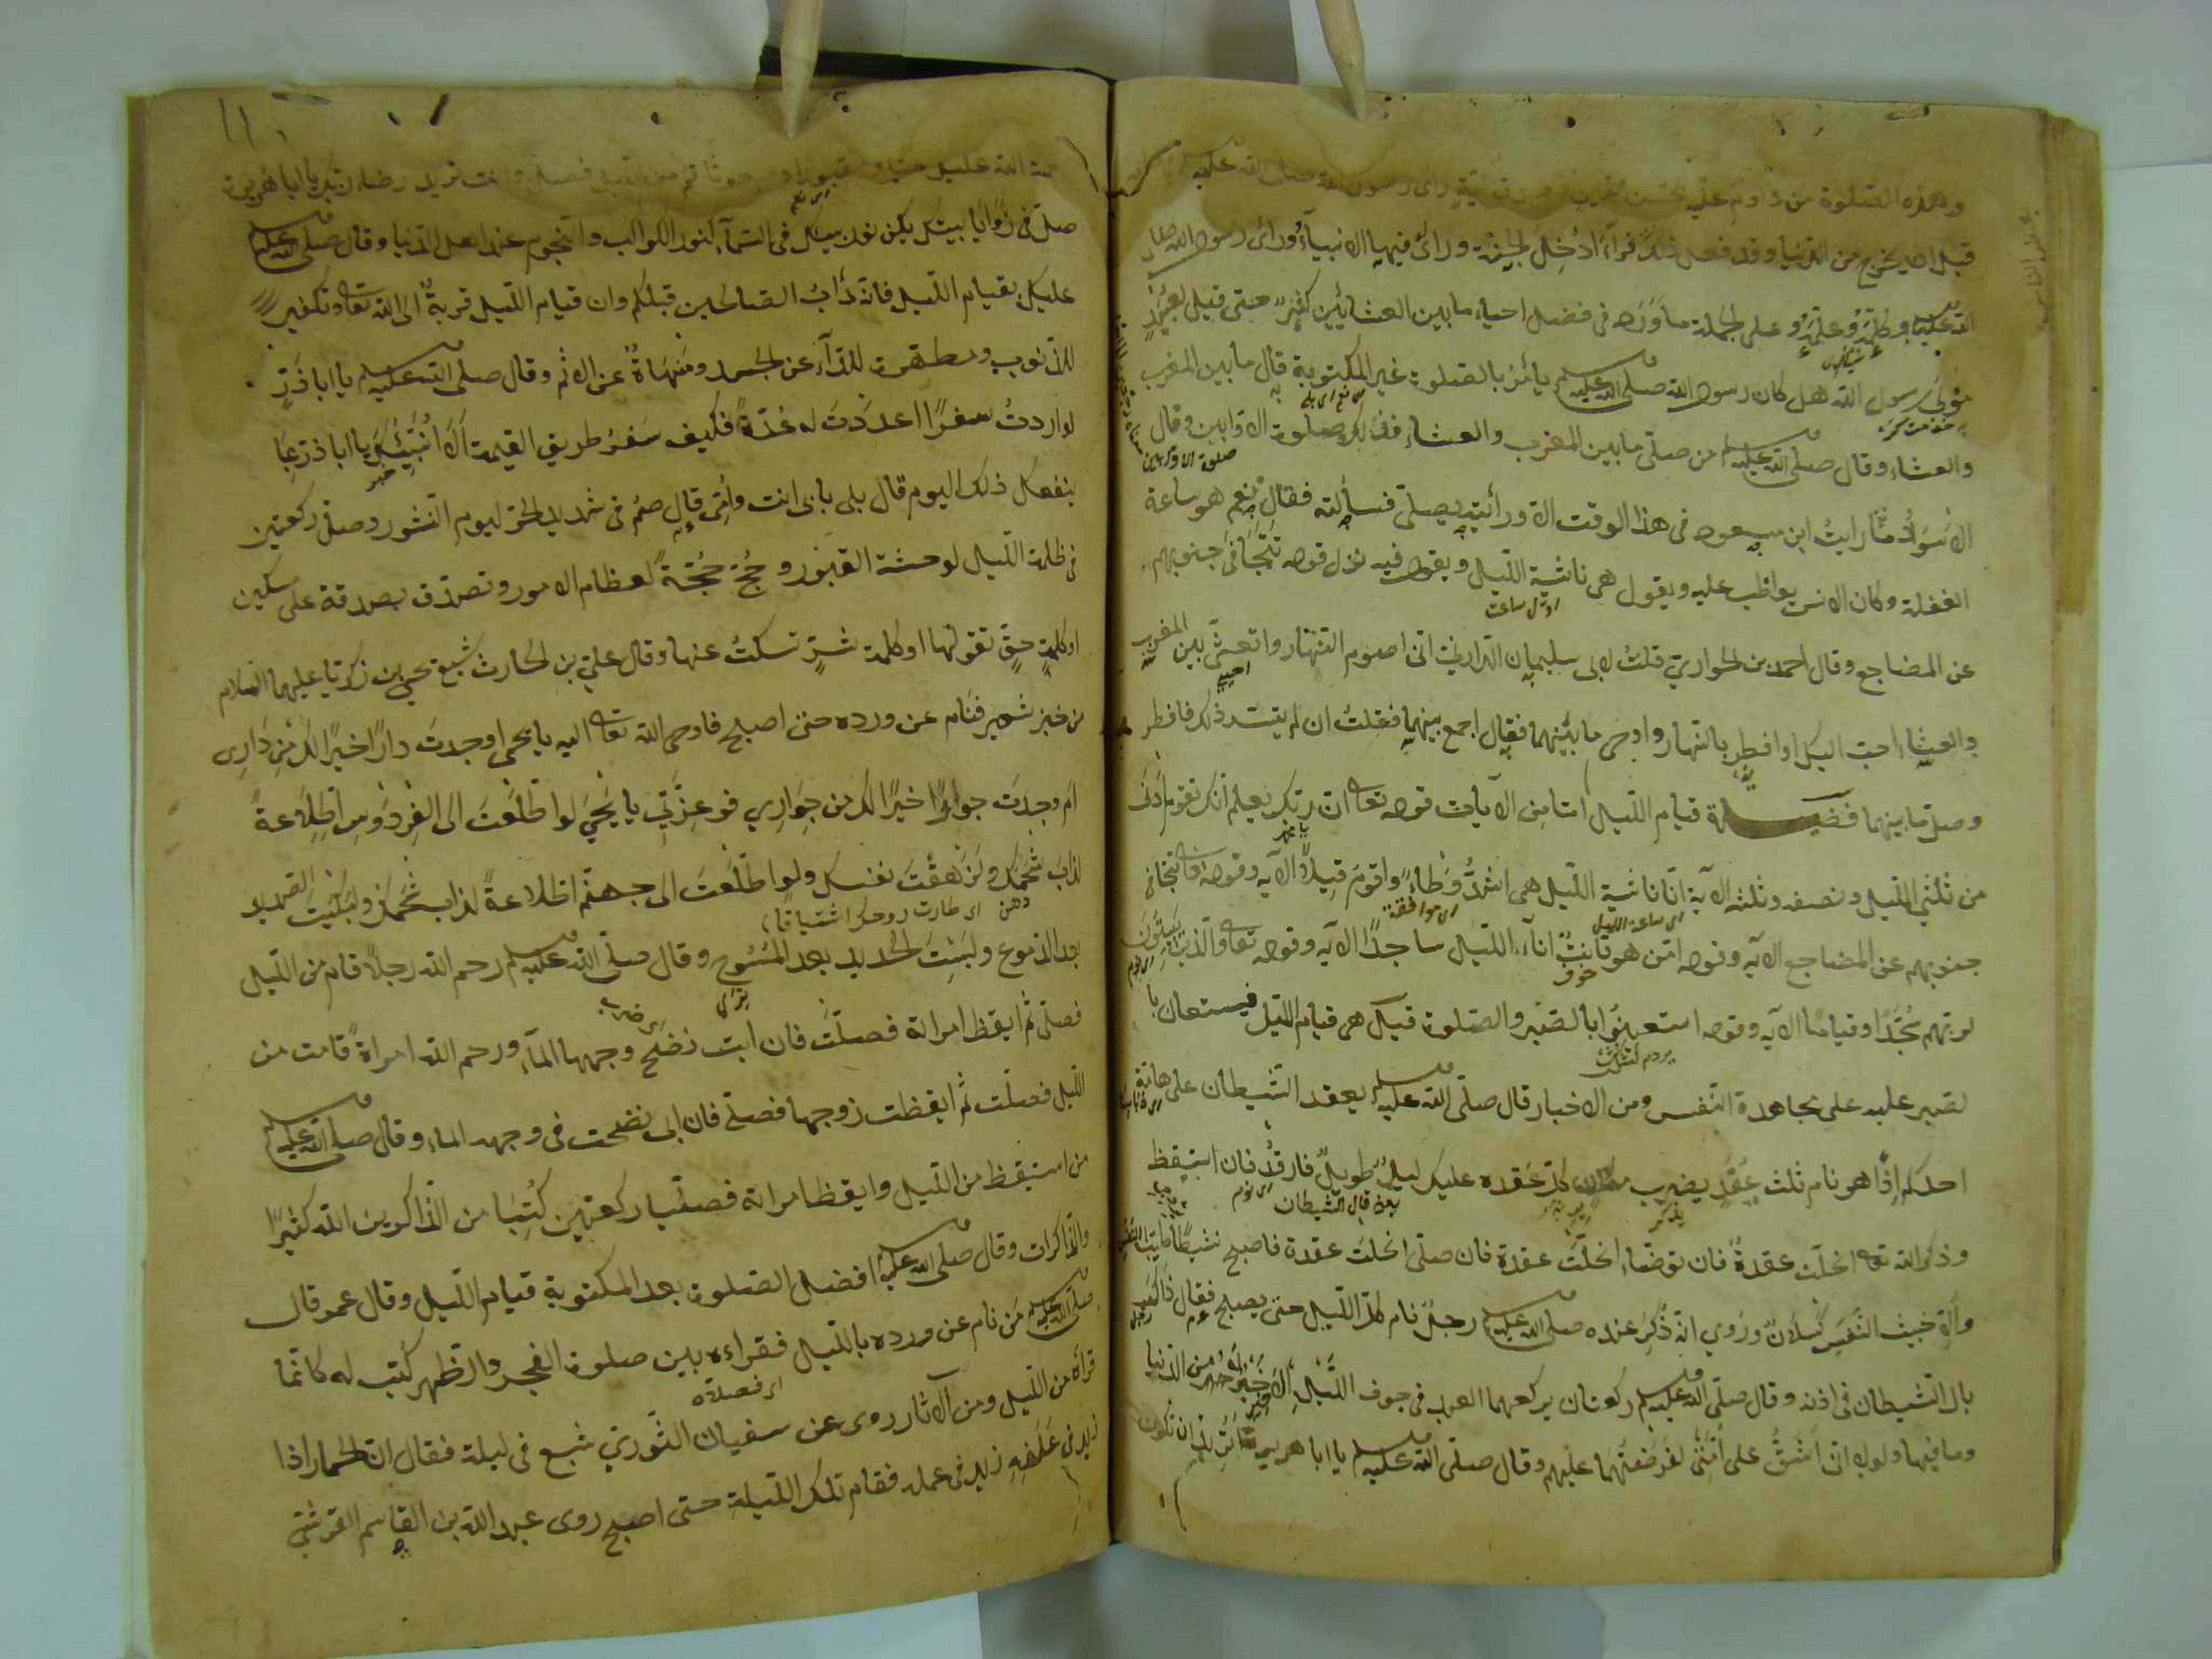 وهذه الصلوة من داوم عليه بحسن يقين رأى رسول الله صلى الله عليه
قبل ان يخرج من الدنيا وقد فعل ذلك فرآه ادخل الجنة ورأى فيها الانبياء ورأى رسول الله صلى
الله عليه وكلمه وعلمه وعلى الجملة ما ورد في فضل احياء ما بين العشائين كثير حتى قيل لعبيد
مولى رسول الله هل كان رسول الله صلى الله عليه يأمر بالصلوة غير المكتوبة قال ما بين المغرب
والعشاء وقال صلى الله عليه وسلم من صلى ما بين المغرب والعشاء فذلك صلوة الاوابين وقال
الاسود ما رايت ابن مسعود في هذا الوقت الا ورأيته يصلي فسألته فقال نعم هو ساعة
الغفلة وكان الانس يواظب عليه ويقول هي ناشية الليل ويقول فيه نزل قوله تتجافى جنوبهم
عن المضاجع وقال احمد بن الحواري قلت لابي سليمان الداراني اني اصوم النهار واتعشى بين المغرب
والعشاء احب اليك او افطر بالنهار واحيي ما بينهما فقال اجمع بينهما فقلت ان لم يتيسر ذلك فافطر
وصل ما بينهما فضيلة قيام الليل اما من الآيات قوله تعا ان ربك يعلم انك تقوم ادنى
من ثلثي الليل ونصفه وثلثه الآية ان ناشية الليل هي اشد وطاء واقوم قيلا الآيه وقوله تعا تتجافى
جنوبهم عن المضاجع الآيه وقوله امن هو قانت اناء الليل ساجدا الآيه وقوله تعا والذين يبيتون
لربهم سجدا وقياما الآيه وقوله استعينوا بالصبر والصلوة قيل هي قيام الليل فيستعان با
لصبر عليه على مجاهدة النفس ومن الاخبار قال صلى الله عليه وسلم يعقد الشيطان على هامة
احدكم اذا هو نام ثلث عقد يضرب مكان كل عقده عليك ليل طويل فارقد فان استيقظ
وذكر الله تعا انحلت عقدة فان توضاء انحلت عقدة فان صلى انحلت عقدة فاصبح نشيطا طيب النفس
والا خبيث النفس كسلان وروي انه ذكر عنده صلى الله عليه وسلم رجل نام كل الليل حتى يصبح فقال ذاك
بال الشيطان في اذنه وقال صلى الله عليه وسلم ركعتان يركعهما العبد في جوف الليل الاخير خير له من الدنيا
وما فيها ولولا ان اشق على امتي لفرضتهما عليهم وقال صلى الله عليه وسلم يا ابا هريرة اتريد ان تكون
رحمة الله عليك حيا ومقبورا قم من الليل فصل وانت تريد رضاء ربك يا ابا هريرة
صل في زوايا بيتك يكن نور بيتك في السماء كنور الكواكب والنجوم عند اهل الدنيا وقال صلى الله عليه وسلم
عليكم بقيام الليل فانه دأب الصالحين قبلكم وان قيام الليل قربة الى الله تعا وتكفير
للذنوب ومطهرة للداء عن الجسد ومنهاة عن الاثم وقال صلى الله عليه وسلم يا ابا ذر
لو اردت سفرا اعددت له عدة فكيف سفر طريق القيمة الا انبئك يا ابا ذر بما
ينفعك ذلك اليوم قال بلى بابى انت وامى قال صم في شديد الحر ليوم النشور وصل ركعتين
في ظلمة الليل لوحشة القبور وحج حجة لعظام الامور وتصدق بصدقة على مسكين
او كلمة حق تقولها او كلمة شر تسكت عنها وقال علي بن الحارث شبع يحي بن زكريا عليهما السلام
من خبز شعير فنام عن ورده حتى اصبح فاوحى الله تعا اليه يا يحي اوجدت دارا خيرا لك من داري
ام وجدت جوارا خيرا لك من جواري فوعزتي يا يحيى لو اطلعت الى الفردوس اطلاعة
لذاب شحمك ولزهقت نفسك ولو اطلعت الى جهنم اطلاعة لذاب شحمك ولبكيت الصديد
بعد الدموع ولبست الحديد بعد المسوح وقال صلى الله عليه وسلم رحم الله رجلا قام من الليل
فصلى ثم ايقظ امراته فصلت فان ابت نضح وجهها الماء ورحم الله امراة قامت من
الليل فصلت ثم ايقظت زوجها فصلى فان ابى نضحت في وجهه الماء وقال صلى الله عليه وسلم
من استيقظ من الليل وايقظ امراته فصليا ركعتين كتبا من الذاكرين الله كثيرا
والذاكرات وقال صلى الله عليه افضل الصلوة بعد المكتوبة قيام الليل وقال عمر قال
صلى الله عليه وسلم من نام عن ورده بالليل فقراءه بين صلوة الفجر والظهر كتب له كانما
قراه من الليل ومن الآثار روى عن سفيان الثوري شبع في ليلة فقال ان الحمار اذا
زيد في علفه زيد في عمله فقام تلك الليلة حتى اصبح روى عبد الله بن القاسم القرشي